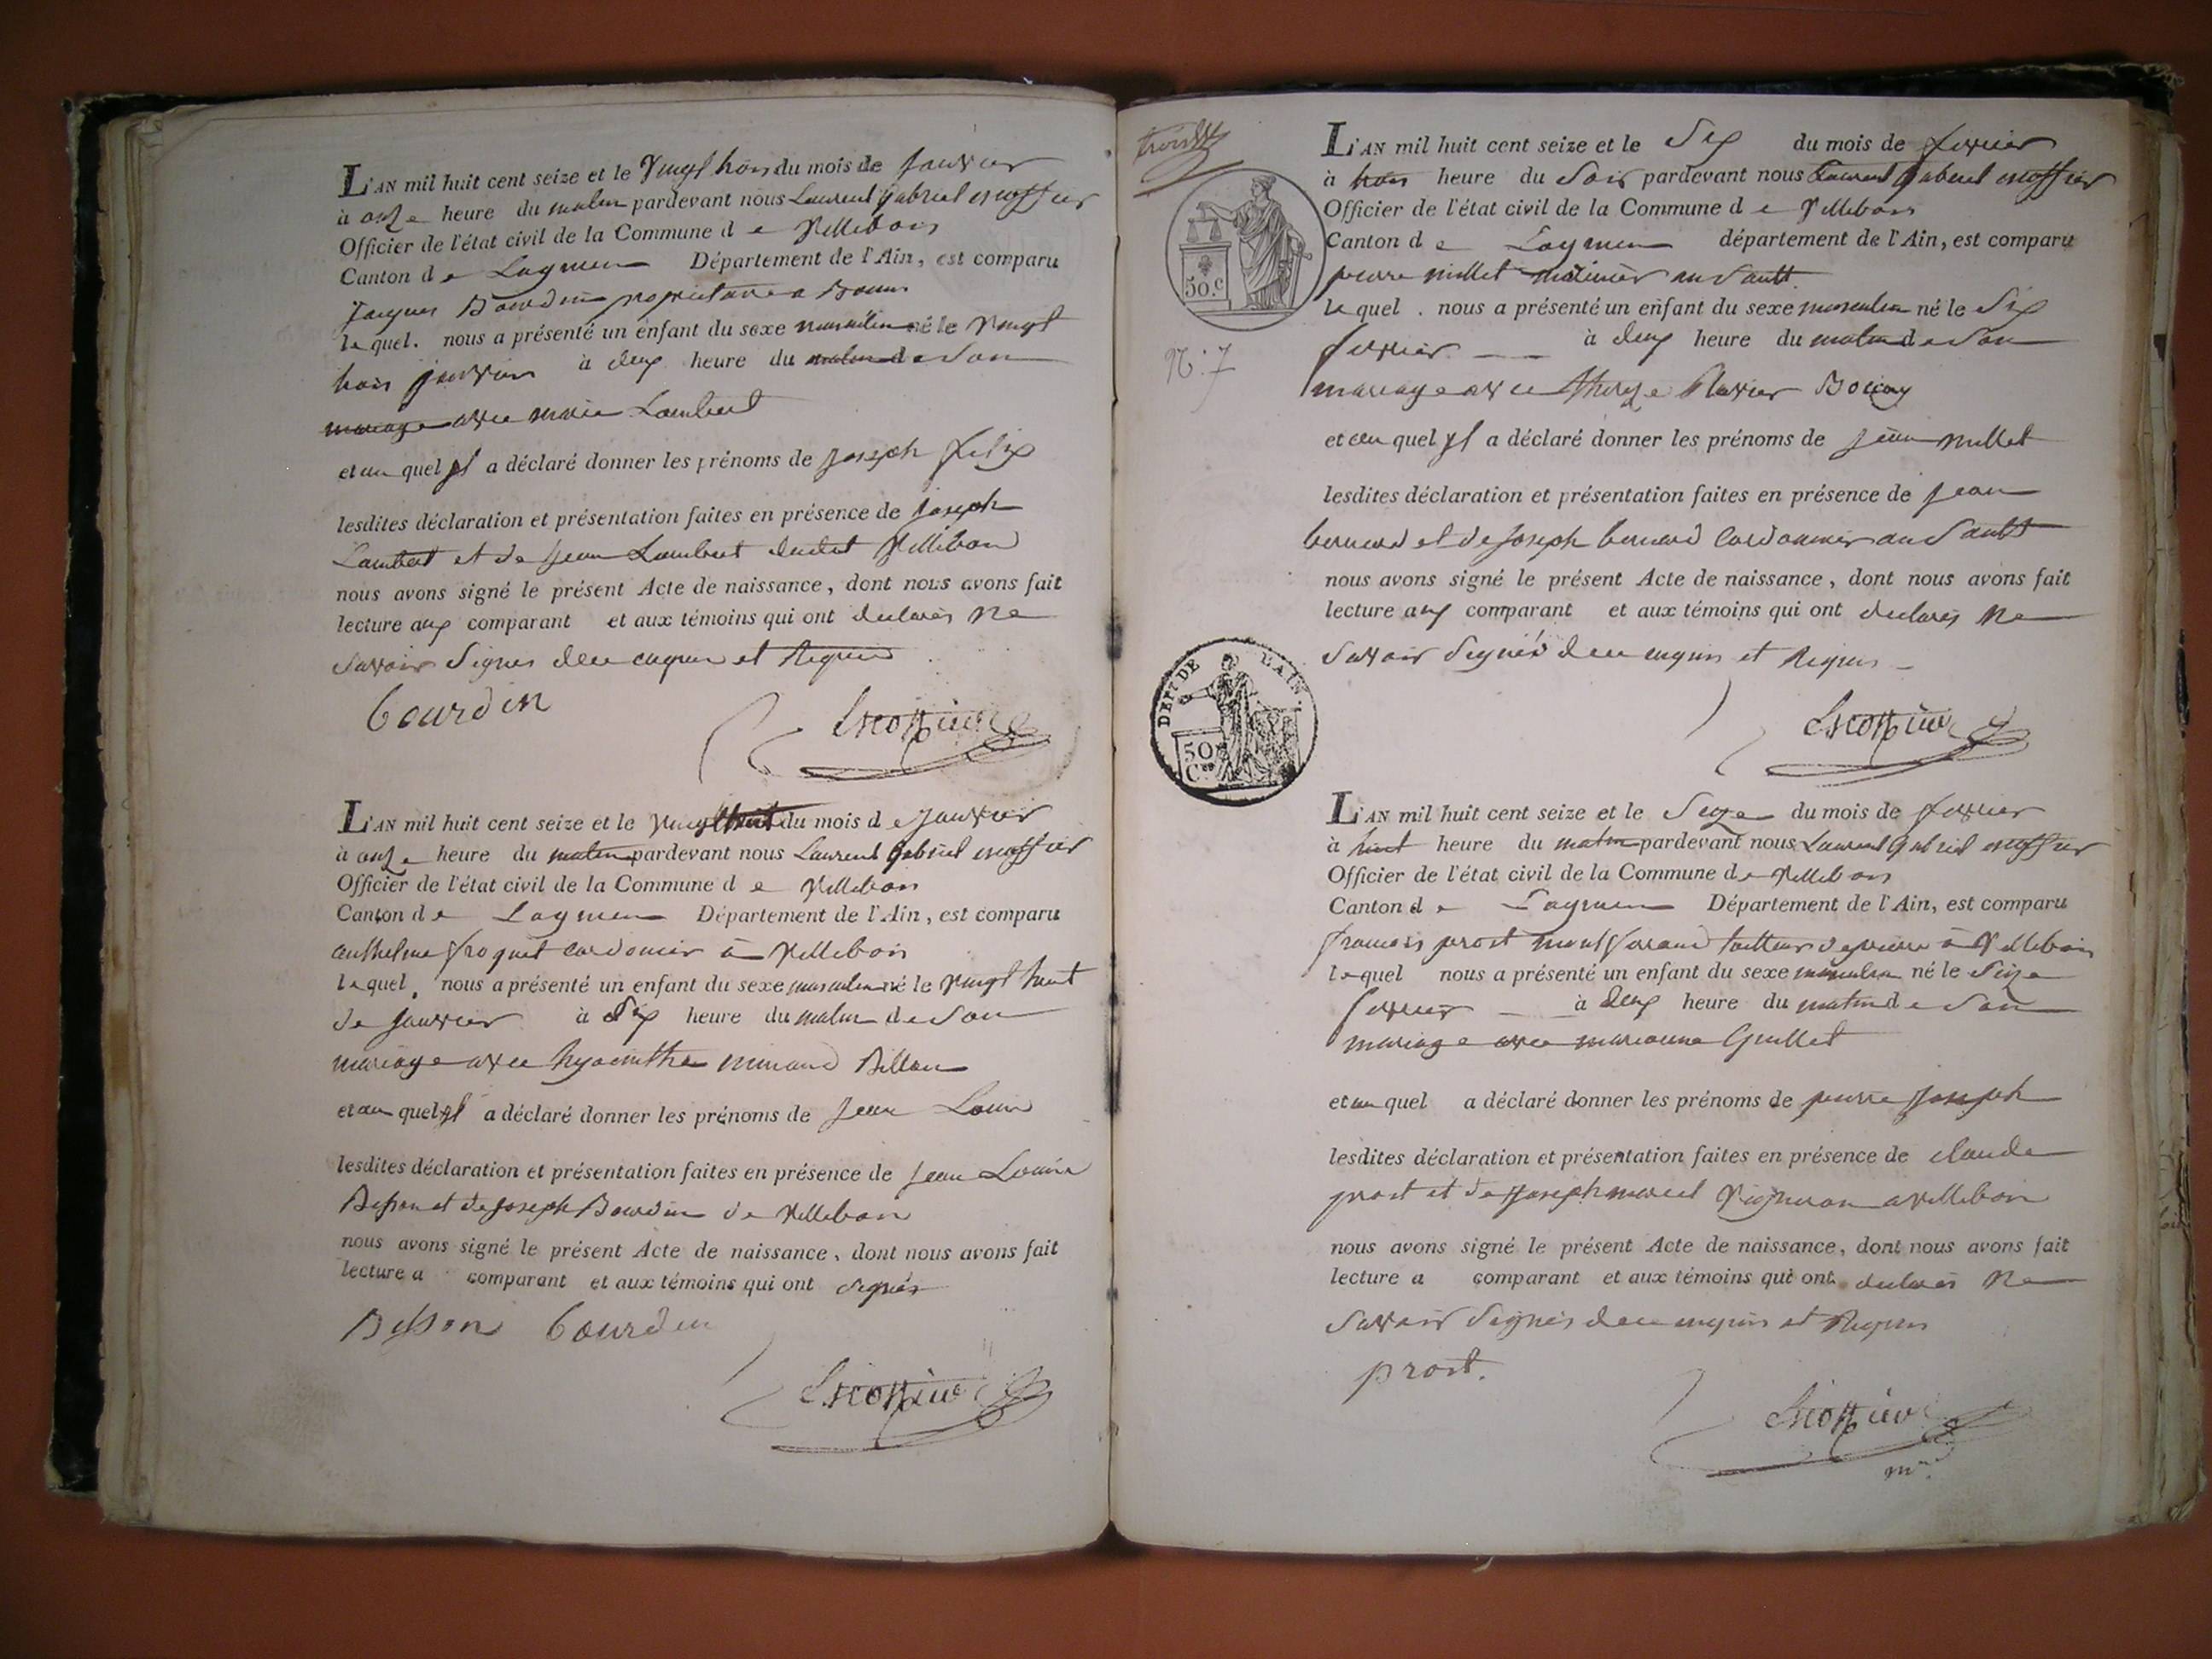 L'AN mil huit cent seize et le Vingt trois du mois de janvier
à onze heure du matin pardevant nous Laurent gabriel escoffier
Officier de l'état civil de la Commune d e Villebois
Canton d e Lagnieu Département de l'Ain, est comparu
jacques Bourdin proprietaire a
le quel. nous a présenté un enfant du sexe masculin né le Vingt
trois janvier à deux heure du matin de son
mariage avec marie Lambert
et au quel il a déclaré donner les prénoms de joseph felix
lesdites déclaration et présentation faites en présence de joseph
Lambert et de jean Lambert dudit Villebois
nous avons signé le présent Acte de naissance, dont nous avons fait
lecture aux comparant et aux témoins qui ont declarés ne
savoir signer de ce enquis et Requis
bourdin
Escoffier
L'AN mil huit cent seize et le Vingt huit du mois d e janvier
à onze heure du matin pardevant nous Laurent gabriel escoffier
Officier de l'état civil de la Commune d e Villebois
Canton d e Lagnieu Département de l'Ain, est comparu
anthelme froquet cordonier à Villebois
le quel. nous a présenté un enfant du sexe masculin né le Vingt huit
de janvier à dix heure du matin de son
mariage avec hyacinthe minand Billon
et au quel il a déclaré donner les prénoms de jean Louis
lesdites déclaration et présentation faites en présence de jean Louis
Besson et de joseph Bourdin de Villebois
nous avons signé le présent Acte de naissance, dont nous avons fait
lecture a comparant et aux témoins qui ont signés
Besson bourdin
Escoffier
trois
50.C
N.° 7
L'AN mil huit cent seize et le Six du mois de fevrier
à trois heure du soir pardevant nous Laurent gabriel escoffier
Officier de l'état civil de la Commune d e Villebois
Canton d e Lagnieu département de l'Ain, est comparu
pierre millet marinier au sault
le quel. nous a présenté un enfant du sexe masculin né le six
fevrier à deux heure du matin de son
mariage avec therese Ravier
et au quel il a déclaré donner les prénoms de jean millet
lesdites déclaration et présentation faites en présence de jean
bernard et de joseph bernard cordonnier au sault
nous avons signé le présent Acte de naissance, dont nous avons fait
lecture aux comparant et aux témoins qui ont declarés ne
savoir signer de ce enquis et Requis
DEPT DE L'AIN.
50
C.es
Escoffier
L'AN mil huit cent seize et le Seize du mois de fevrier
à huit heure du matin pardevant nous Laurent gabriel escoffier
Officier de l'état civil de la Commune d e Villebois
Canton d e Lagnieu Département de l'Ain, est comparu
francois prost montferrand tailleur de pierre à Villebois
le quel nous a présenté un enfant du sexe masculin né le seize
fevrier à deux heure du matin de son
mariage avec marianne Grillet
et au quel a déclaré donner les prénoms de pierre joseph
lesdites déclaration et présentation faites en présence de claude
prost et de joseph marcel Vigneron a villebois
nous avons signé le présent Acte de naissance, dont nous avons fait
lecture a comparant et aux témoins qui ont declarés ne
savoir signer de ce enquis et Requis
prost.
Escoffier